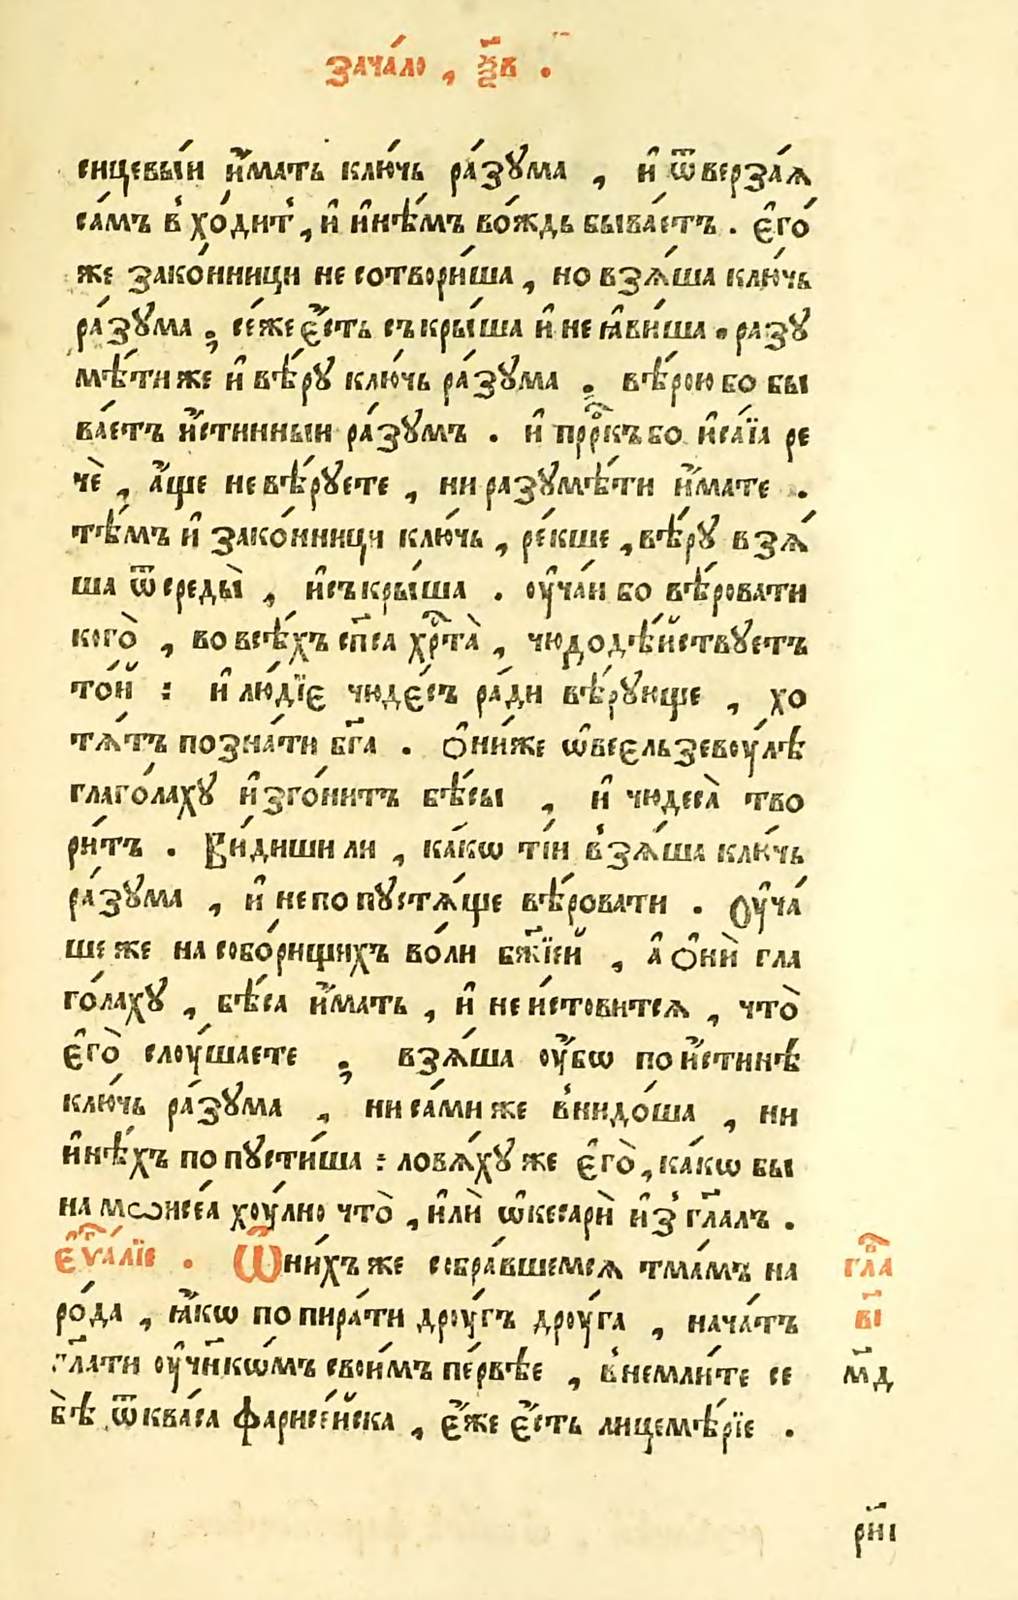 зача́ло , ѯ҃в .
сицевы́и и҆́мать клю́чь ра́зꙋма , и҆ ѿверза́ѧ
са́мъ в̾хо́дит̾ , и҆ и҆нѣ́мъ во́ждь быва́етъ . є҆го́
же зако́нници не сотвори́ша , но взѧ́ша клю́чь
ра́зꙋма ; се́же є҆́сть съкры́ша и҆ не ꙗ҆ви́ша . разꙋ
мѣ́ти же и҆ вѣ́рꙋ клю́чь ра́зꙋма ; вѣ́рою бо бы
ва́етъ и҆́стинныи ра́зꙋмъ . и҆ прⷪ҇ркъ бо и҆са́їа ре
чѐ , а҆́ще не вѣ́рꙋете , ни разꙋмѣ́ти и҆́мате .
тѣ́мъ и҆ зако́нници клю́чь , ре́кше , вѣ́рꙋ взѧ́
ша ѿ среды̀ , и҆съкры́ша . оу҆ча́и бо вѣ́ровати
кого̀ , во всѣ́хъ сп҃са хрⷭ҇та̀ , чюдодѣ́йствꙋетъ
то́й : и҆ лю́дїє чюде́съ ра́ди вѣ́рꙋюще , хо
тѧ́тъ позна́ти бг҃а . Ѻ҆ни́же ѡ҆веєльзевоу́лѣ
глаго́лахꙋ и҆зго́нитъ бѣ́сы , и҆ чюдеса̀ тво
ри́тъ . Ви́диши ли , ка́кѡ ті́и в̾зѧ́ша клю́чь
ра́зꙋма , и҆ не попꙋстѧ́ще вѣ́ровати . Оу҆ча́
ше же на собо́рищихъ во́ли бж҃їей , а҆ ѻ҆нѝ гла
го́лахꙋ , бѣ́са и҆́мать , и҆ не и́стовитсѧ , что̀
є҆го̀ слоу́шаете ; взѧ́ша оу҆́бѡ по и҆́стинѣ
клю́чь ра́зꙋма , ни са́ми же в̾нидо́ша , ни
и҆нѣ́хъ попꙋсти́ша : ловѧ́хꙋ же є҆го̀ , ка́кѡ бы
на мѡисе́а хоу́лно что̀ , и҆лѝ ѡ҆кесарѝ и҆з̾ гл҃алъ .
є҆ѵⷢ҇а́лїе . Ѿ ни́хъ же собра́вшемсѧ тма́мъ на
ро́да , ꙗ҆́кѡ попира́ти дроу́гъ дроу́га , нача́тъ
гл҃ати оу҆чн҃кѡмъ свои́мъ пе́рвѣе , в̾немли́те се
бѣ̀ ѿ ква́са фарисе́йска , є҆́же є҆́сть лицемѣ́рїе .
глⷡ҇а
в҃і
м҃д
рн҃і